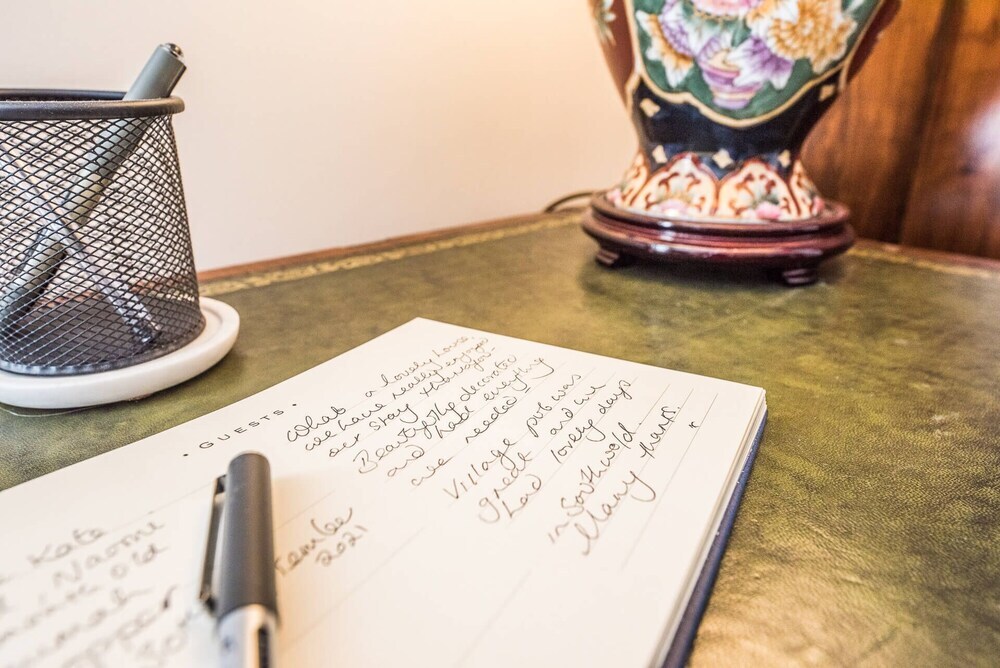 • GUESTS •
What a lovely house,
we have really enjoyed
our stay thankyou -
Beautifully decorated
and had everything
we needed
Village pub was
great and we
had lovely days
in Southwold.
Many thanks.
"
tember
2021
Kate
, Naomi
month old